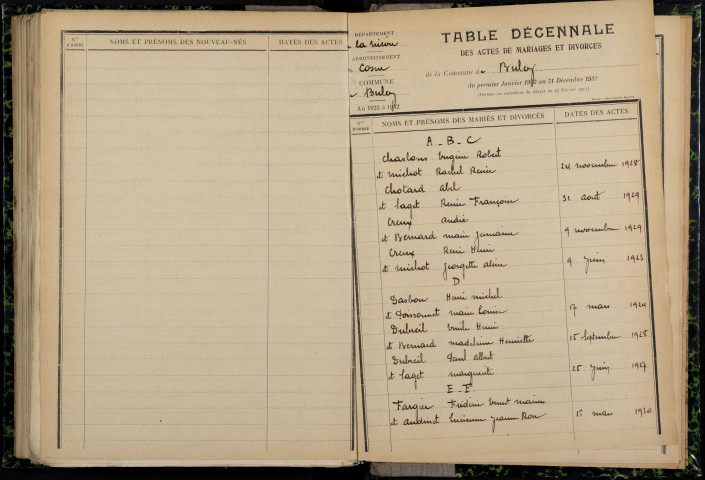 Nos D'ORDRE
NOMS ET PRÉNOMS DES NOUVEAU-NÉS
DATES DES ACTES
DÉPARTEMENT
ARRONDISSEMENT
Cosne
COMMUNE
Bulcy
An 1923 à 1932
TABLE DÉCENNALE
DES ACTES DE MARIAGES ET DIVORCES
de la Commune de Bulcy
du premier Janvier 1923 au 31 Décembre 1932
Nos D'ORDRE
NOMS ET PRÉNOMS DES MARIÉS ET DIVORCÉS
DATES DES ACTES
A - B - C
Chaslons Eugène Robert
et Michot Rachel Renée 24 novembre 1928
Chotard Abel
et Laget Renée Françoise 31 aout 1929
Creux André
et Bernard Marie Germaine 9 novembre 1929
Creux René Henri
et Michot Georgette 9 Juin 1923
D
Henri Michel
et Marie Louise 17 mars 1924
Dubreil Emile Henri
et Bernard Madeleine Henriette 15 Septembre 1928
Dubreil Paul Albert
et Laget Marguerite 25 Juin 1927
E - F
Fargier Frédéric Ernest Marius
et Audinet Lucienne Jeanne Rose 1er mars 1930